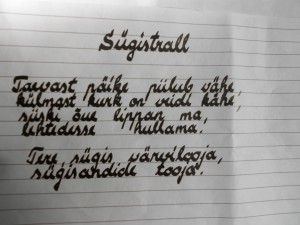 Sügistrall
Taevast päike piilub vähe,
külmast kurk on veidi kähe,
siiski õue lippan ma,
lehtedesse hullama.
Tere, sügis värvilooja,
sügisandide tooja.